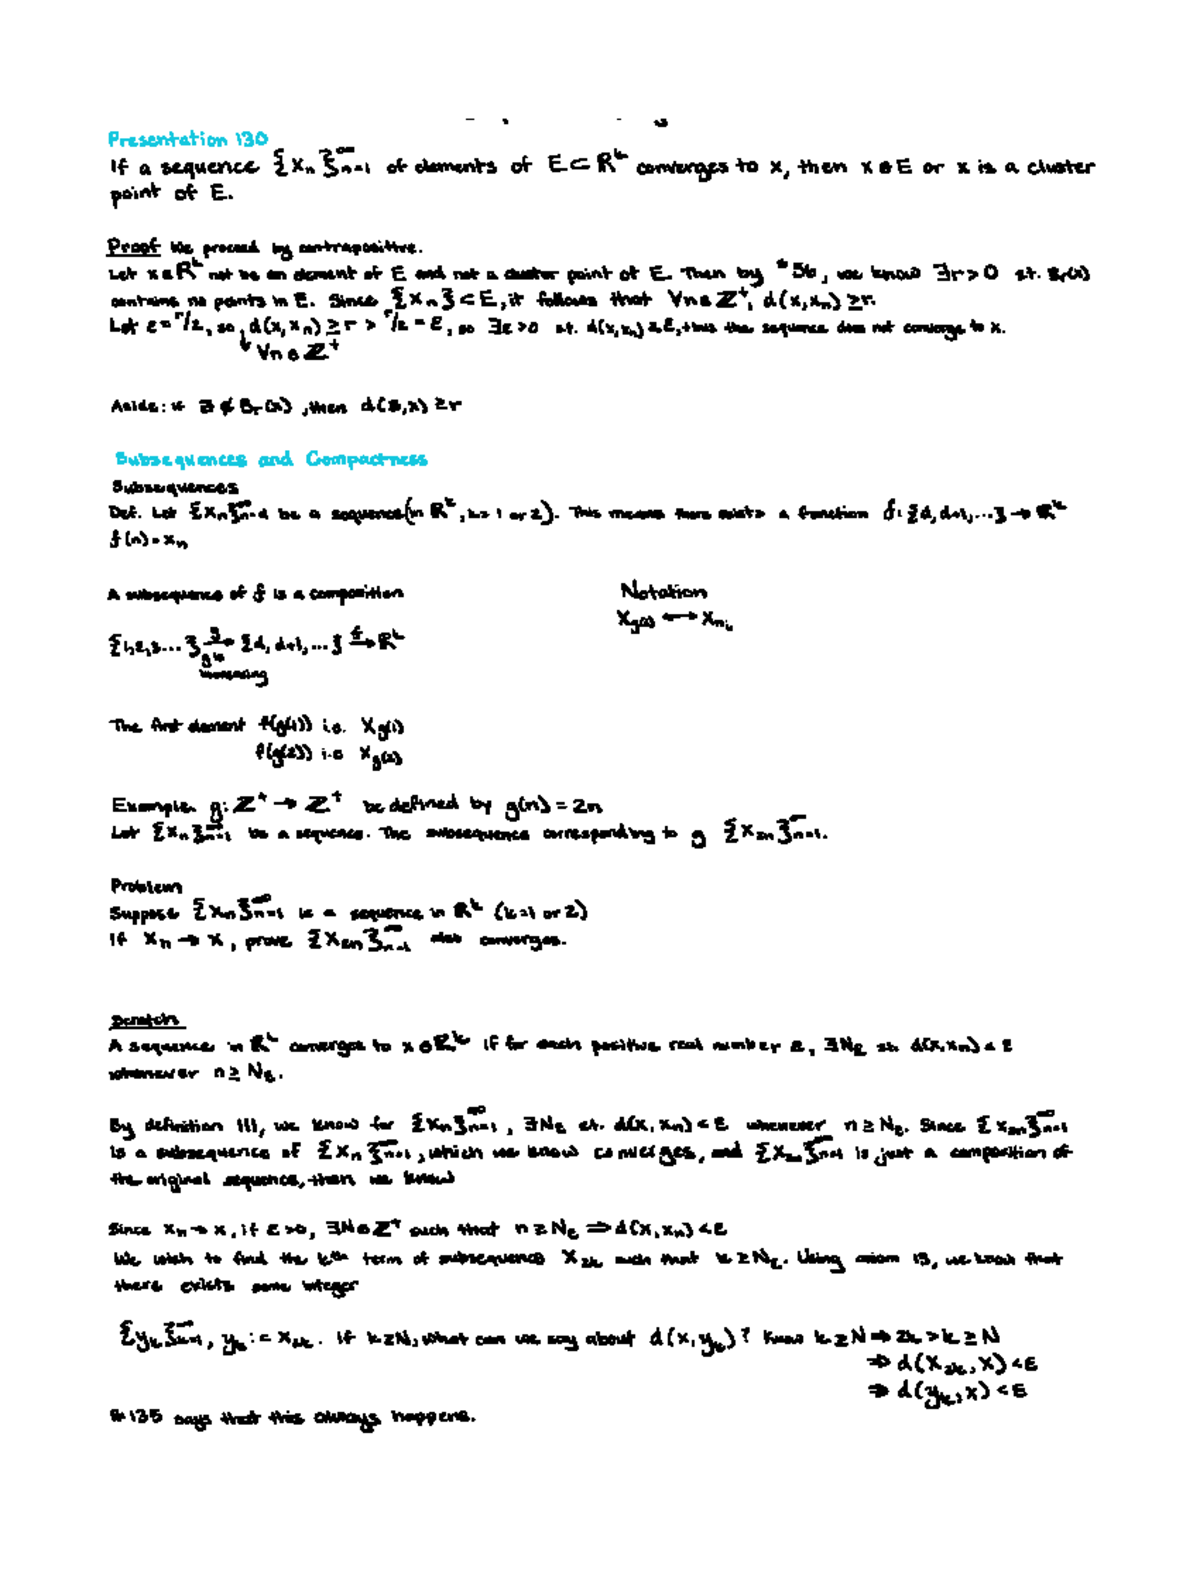 Presentation 130
If a sequence {xₙ}ₙ₌₁^∞ of elements of E ⊂ ℝᵏ converges to x, then x ∈ E or x is a cluster
point of E.
Proof We proceed by contrapositive.
Let x ∈ ℝᵏ not be an element of E and not a cluster point of E. Then by #56, we know ∃r > 0 st. Bᵣ(x)
contains no points in E. Since {xₙ} ⊂ E, it follows that ∀n ∈ ℤ⁺, d(x,xₙ) ≥ r.
Let ε = r/2, so, d(x,xₙ) ≥ r > r/2 = ε, so ∃ε>0 st. d(x,xₙ) ≥ ε, thus the sequence does not converge to x.
↓ ∀n ∈ ℤ⁺
Aside: if z ∉ Bᵣ(x), then d(z,x) ≥ r
Subsequences and Compactness
Subsequences
Def. Let {xₙ}ₙ₌d^∞ be a sequence (in ℝᵏ, k = 1 or 2). This means there exists a function f: {d, d+1, ...} → ℝᵏ
f(n) = xₙ
A subsequence of f is a composition
Notation
x_g(i) ⟷ x_nᵢ
{1,2,3...} →g {d, d+1, ...} →f ℝᵏ
g is
increasing
The first element f(g(1)) i.e. x_g(1)
f(g(2)) i.e x_g(2)
Example. g: ℤ⁺ → ℤ⁺ be defined by g(n) = 2n
Let {xₙ}ₙ₌₁^∞ be a sequence. The subsequence corresponding to g {x₂ₙ}ₙ₌₁^∞.
Problem
Suppose {xₙ}ₙ₌₁^∞ is a sequence in ℝᵏ (k=1 or 2)
If xₙ → x, prove {x₂ₙ}ₙ₌₁^∞ also converges.
Scratch
A sequence in ℝᵏ converges to x ∈ ℝᵏ if for each positive real number ε, ∃Nε st d(x,xₙ) < ε
whenever n ≥ Nε.
By definition 111, we know for {xₙ}ₙ₌₁^∞, ∃Nε st. d(x,xₙ) < ε whenever n ≥ Nε. Since {x₂ₙ}ₙ₌₁^∞
is a subsequence of {xₙ}ₙ₌₁^∞, which we know converges, and {x₂ₙ}ₙ₌₁^∞ is just a composition of
the original sequence, then we know
Since xₙ → x, if ε > 0, ∃N ∈ ℤ⁺ such that n ≥ Nε ⇒ d(x,xₙ) < ε
We wish to find the kᵗʰ term of subsequence x₂ₖ such that k ≥ Nε. Using axiom 13, we know that
there exists some integer
{yₖ}ₖ₌₁^∞, yₖ := x₂ₖ. If k ≥ N, what can we say about d(x,yₖ)? Know k ≥ N ⇒ 2k > k ≥ N
⇒ d(x₂ₖ,x) < ε
⇒ d(yₖ,x) < ε
#135 says that this always happens.